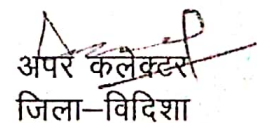 अपर कलेक्टर
जिला–विदिशा